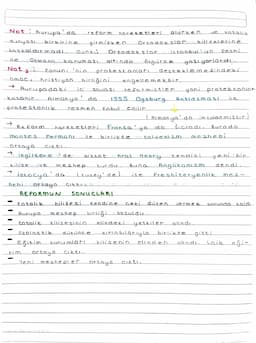 Not: Avrupa'da reform hareketleri olurken ve katolik
dünyası birbirine girerken Ortodokslar kiliselerine
Ortodokslar İstanbul'un fethi
ile Osmanlı koruması altında özgürce yaşıyorlardı
Not 2: Kanuni'nin protestanları desteklemesindeki
amaç, Hristiyan birliğini engellemektir.
→ Avrupadaki iç savaşı reformistler yani protestanlar
kazanır. Almanya'da 1555 Ogsburg Antlaşması ile
protestanlık resmen kabul edilir.
(Almanya'da imzalanmıştır)
→ Reform hareketleri Fransa'ya da sıçradı. Burada
Fermanı ile birlikte kalvenizm mezhebi
ortaya çıktı.
→ İngiltere'de bizzat Kral Henry kendisi yeni bir
kilise ve mezhep kurdu buna Anglikanizm dendi.
→ İskoçya'da ise Presbiteryenlik mez-
hebi ortaya çıktı.
REFORMUN SONUÇLARI
- Katolik kilisesi kendine çeki düzen vermek zorunda kaldı
- Avrupa mezhep birliği bozuldu
- Katolik kilisesinin elindeki yetkiler alındı
- Skolastik düşünce yıkılmasıyla birlikte gitti
- Eğitim kurumları kilisenin elinden alındı laik eği-
tim ortaya çıktı.
- Yeni mezhepler ortaya çıktı.